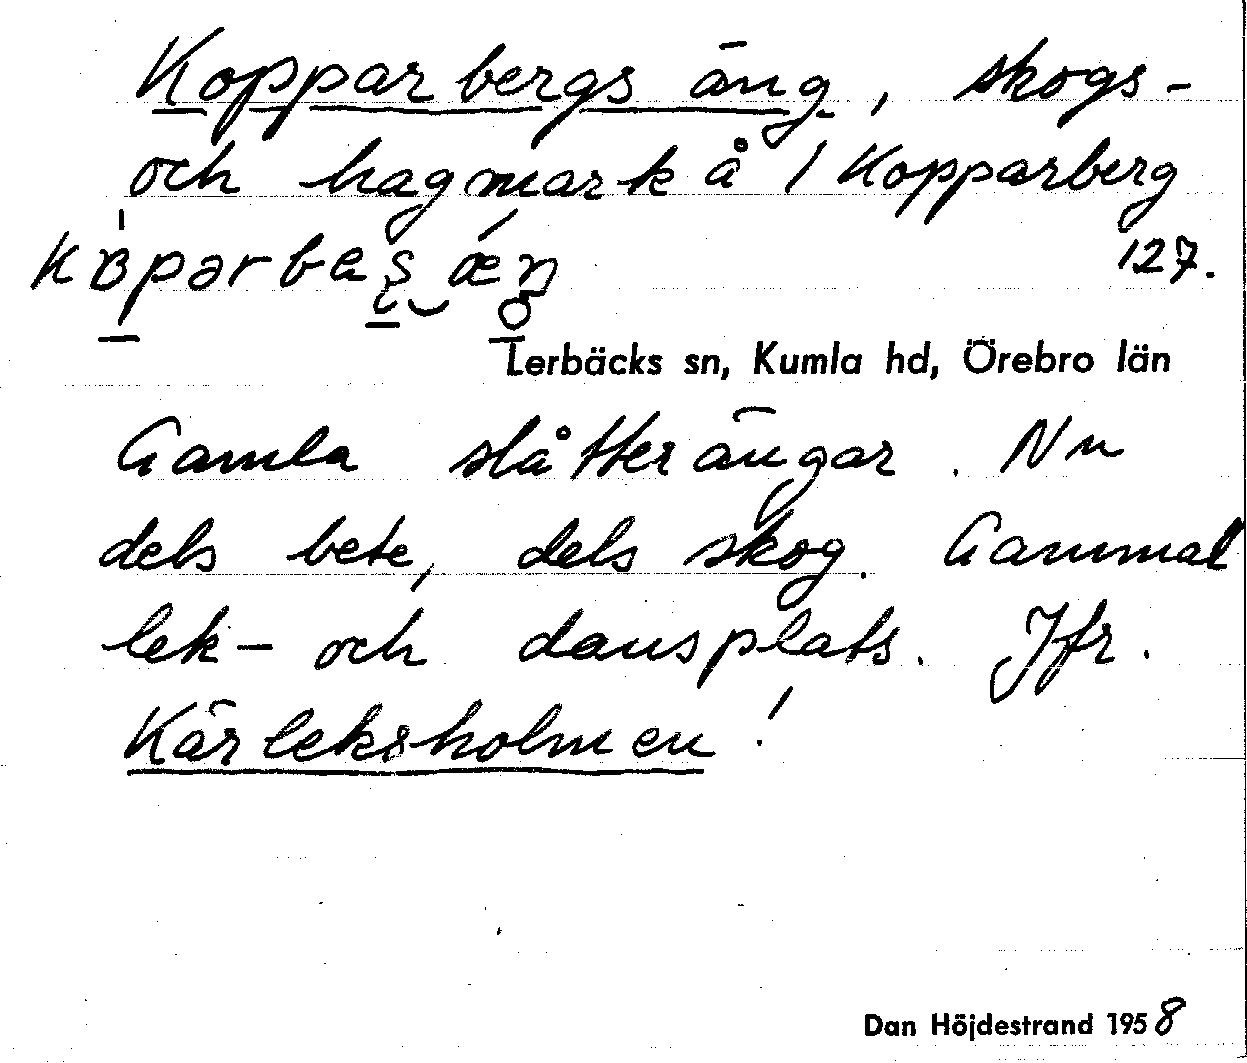 Kopparbergs äng, skogs-
och hagmark å 1 Kopparberg
127.
Lerbäcks sn, Kumla hd, Örebro län
Gamla slåtterängar. Nu
dels bete, dels skog. Gammal
lek- och dansplats. Jfr.
Kärleksholmen!
Dan Höjdestrand 1958